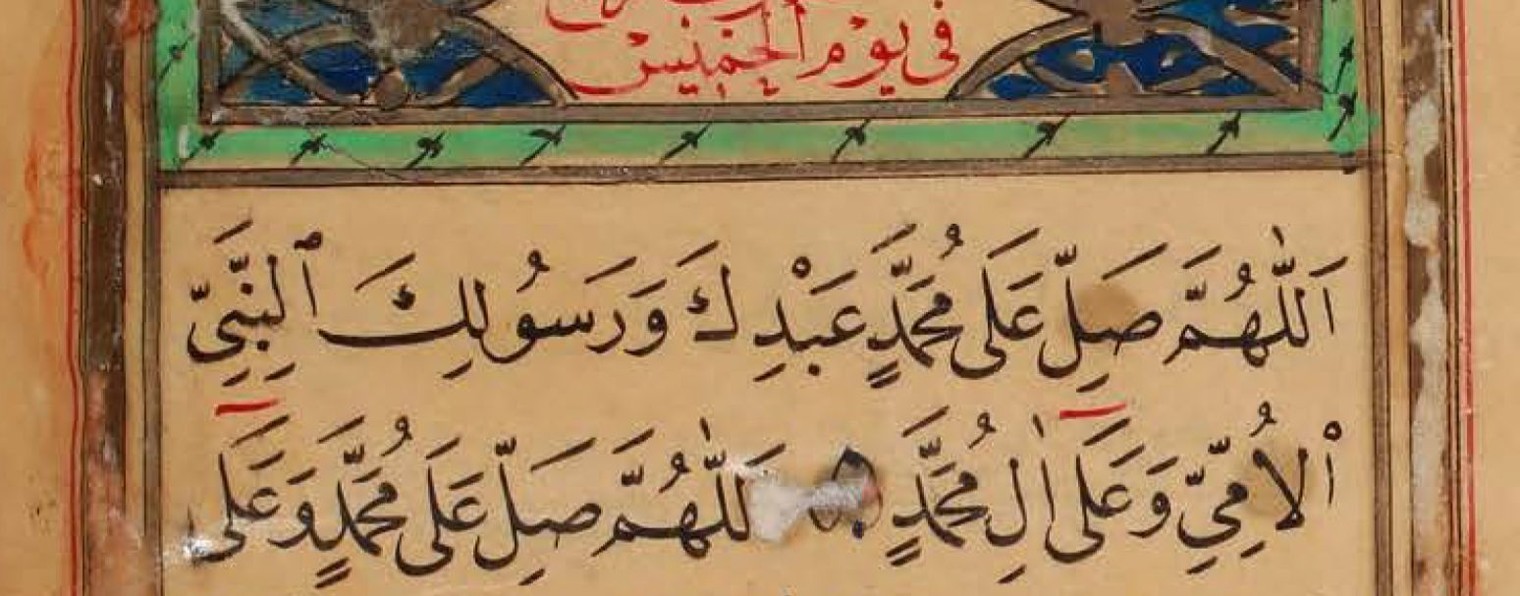 فِى يَوْمِ الْخَمِيسْ
اَللّٰهُمَّ صَلِّ عَلَى مُحَمَّدٍ عَبْدِكَ وَرَسُولِكَ ٱلنَّبِىِّ
ٱلْاُمِّىِّ وَعَلَى اٰلِ مُحَمَّدٍ اَللّٰهُمَّ صَلِّ عَلَى مُحَمَّدٍ وَعَلَى